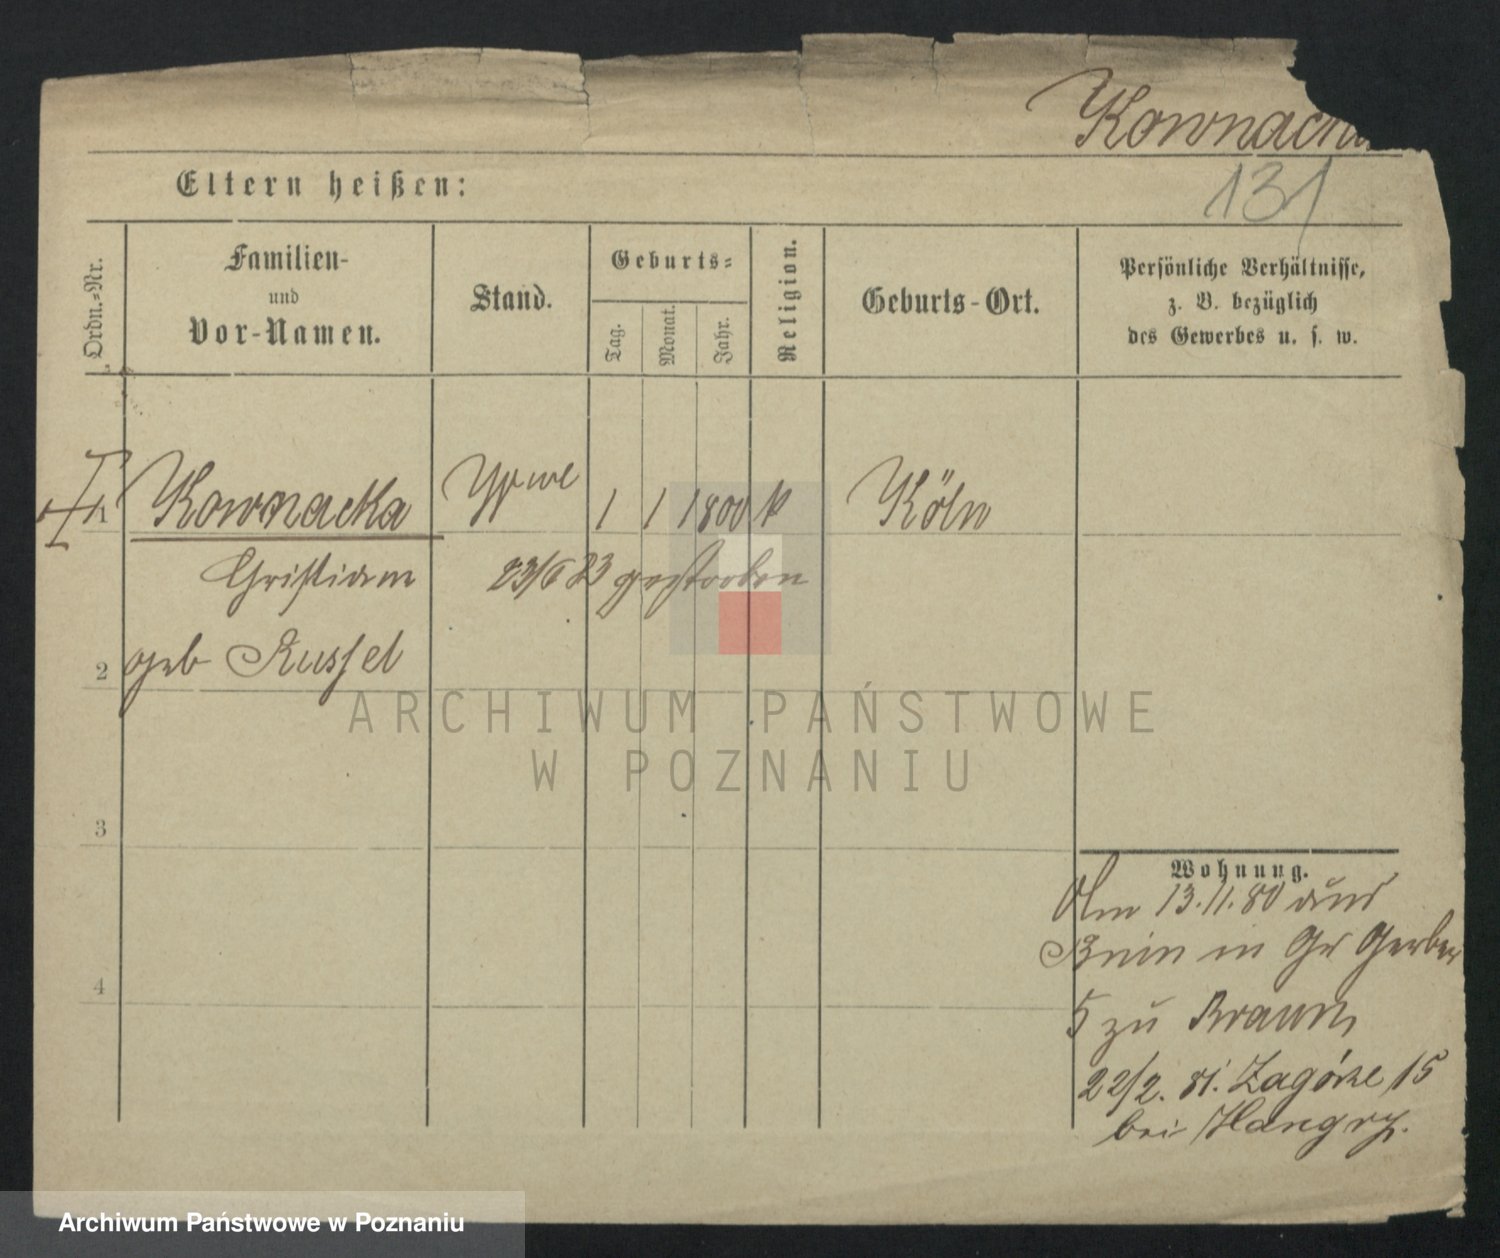 Kownacka
131
Eltern heißen:
Ordn.-Nr.
Familien-
und
Vor-Namen.
Stand.
Geburts-
Tag.
Monat.
Jahr.
Religion.
Geburts-Ort.
Persönliche Verhältnisse,
z. B. bezüglich
des Gewerbes u. s. w.
1 Kownacka Wwe 1 1 1800 k Köln
Christiane 23/6 83 gestorben
2 geb Russel
ARCHIWUM PAŃSTWOWE
W POZNANIU
3
Wohnung.
Am 13.11.80 aus
Bnin in Gr Gerber
4
5 zu Braun
22/2. 81. Zagórze 15
bei
Archiwum Państwowe w Poznaniu